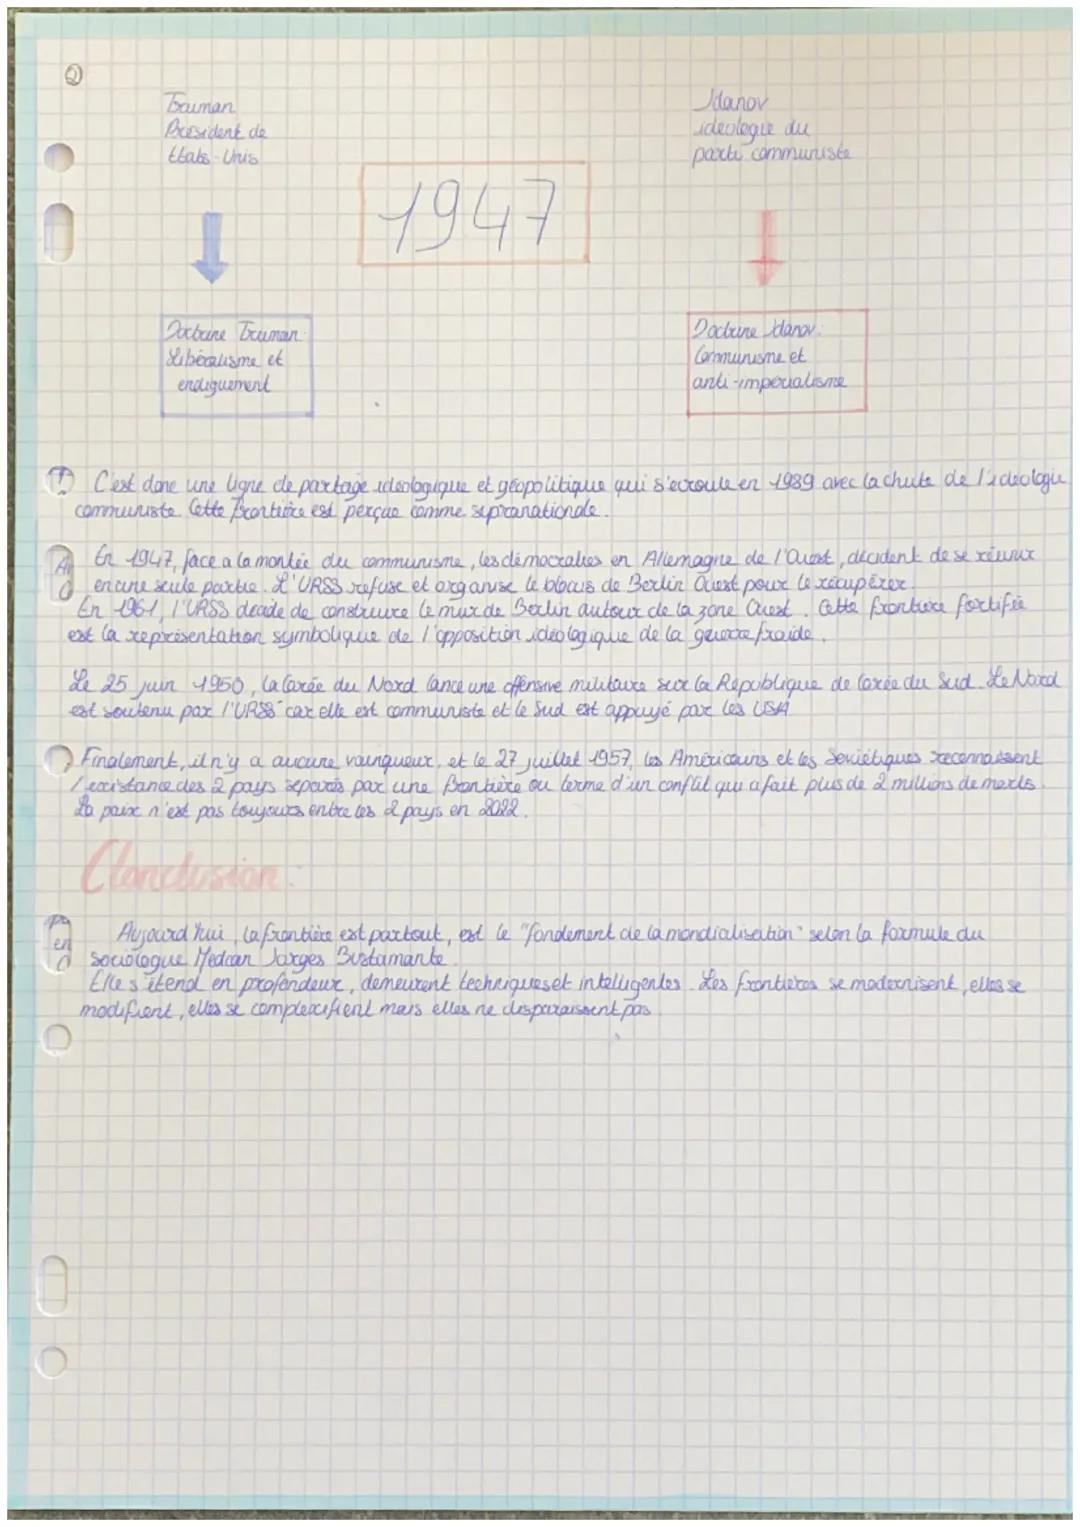 2
Truman
Président de
Etats-Unis
Jdanov
idéologie du
parti communiste
1947
Doctrine Truman:
Libéralisme et
endiguement
Doctrine Jdanov:
Communisme et
anti-impérialisme
C'est donc une ligne de partage idéologique et géopolitique qui s'écroule en 1989 avec la chute de l'idéologie
communiste. Cette frontière est perçue comme supranationale.
En 1947, face a la montée du communisme, les démocraties en Allemagne de l'Ouest, décident de se réunir
en une seule partie. L'URSS refuse et organise le blocus de Berlin Ouest pour le récupérer.
En 1961, l'URSS décide de construire le mur de Berlin autour de la zone Ouest. Cette frontière fortifiée
est la représentation symbolique de l'opposition idéologique de la guerre froide.
Le 25 juin 1950, la Corée du Nord lance une offensive militaire sur la République de Corée du Sud. Le Nord
est soutenu par l'URSS car elle est communiste et le Sud est appuyé par les USA
Finalement, il n'y a aucune vainqueur, et le 27 juillet 1957, les Américains et les Soviétiques reconnaissent
l'existance des 2 pays séparés par une frontière au terme d'un conflit qui a fait plus de 2 millions de morts.
La paix n'est pas toujours entre les 2 pays en 2022.
Conclusion:
Aujourd'hui, la frontière est partout, est le "fondement de la mondialisation" selon la formule du
sociologue Jorges Bustamante.
Elle s'étend en profondeur, demeurent techniques et intelligentes. Les frontières se modernisent, elles se
modifient, elles se complexifient mais elles ne disparaissent pas.